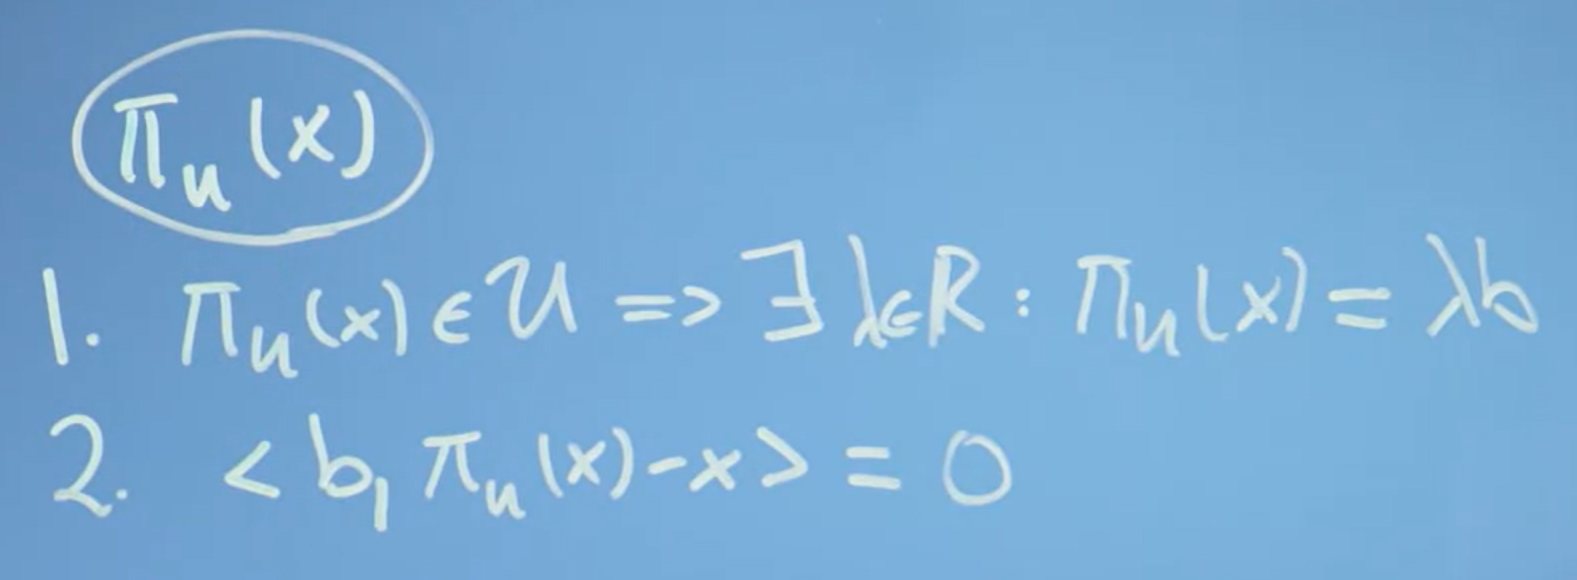 π_u (x)
1. π_u (x) ∈ U => ∃ λ∈R : π_u (x) = λb
2. <b, π_u (x) - x> = 0